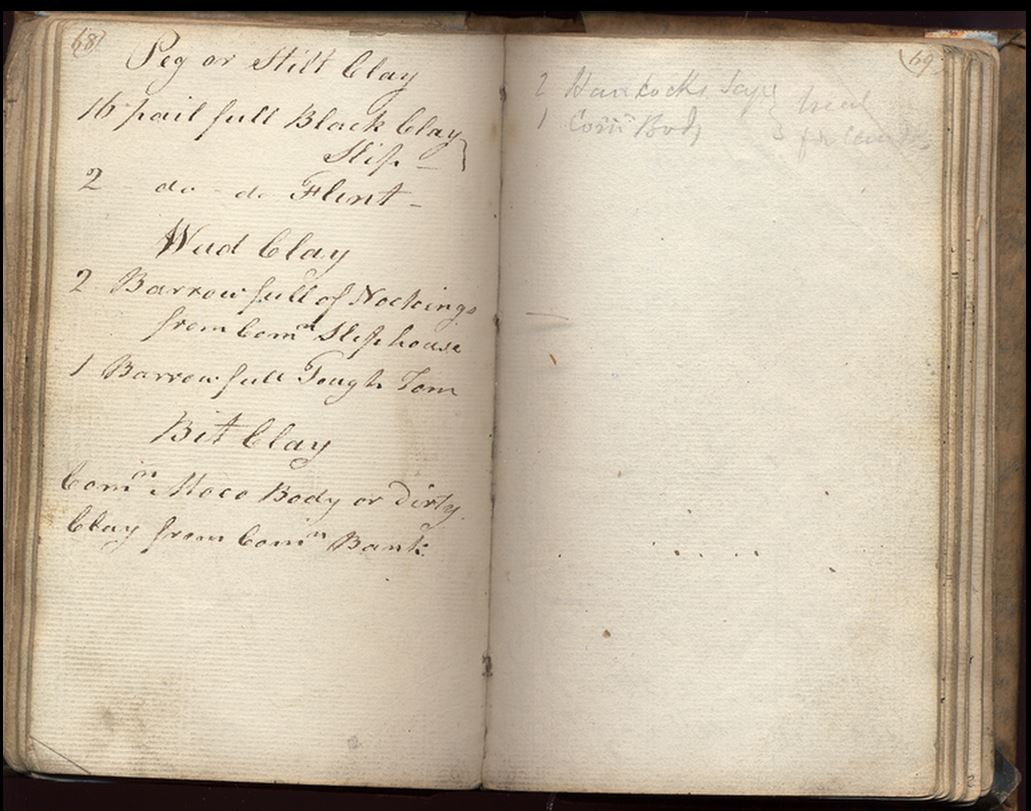 68
Peg or Stilt Clay
16 pail full Black Clay
Slip
2 do do Flint
Wad Clay
2 Barrow full of Nockings
from Comn Sliphouse
1 Barrow full Tough Tom
Bit Clay
Comn Moco Body or Dirty
Clay from Comn Bank
69
2 Hancocks
1 Comn Body